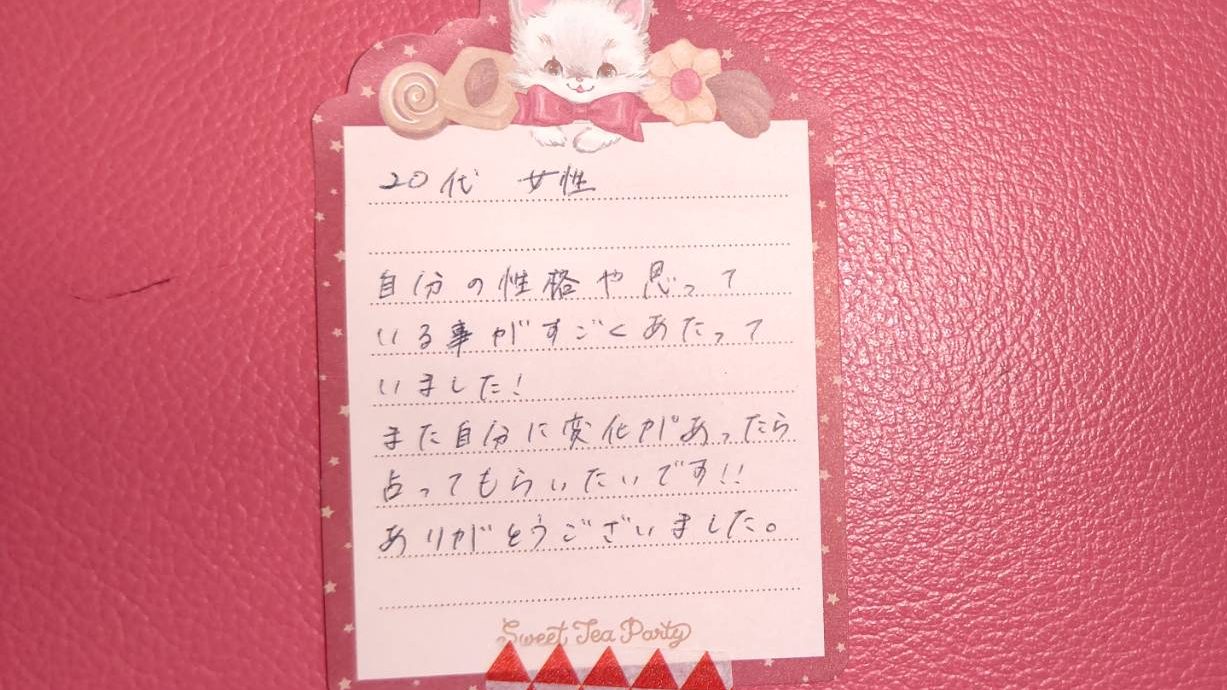 20代 女性
自分の性格や思って
いる事がすごくあたって
いました!
また自分に変化があったら
占ってもらいたいです!!
ありがとうございました。
Sweet Tea Party